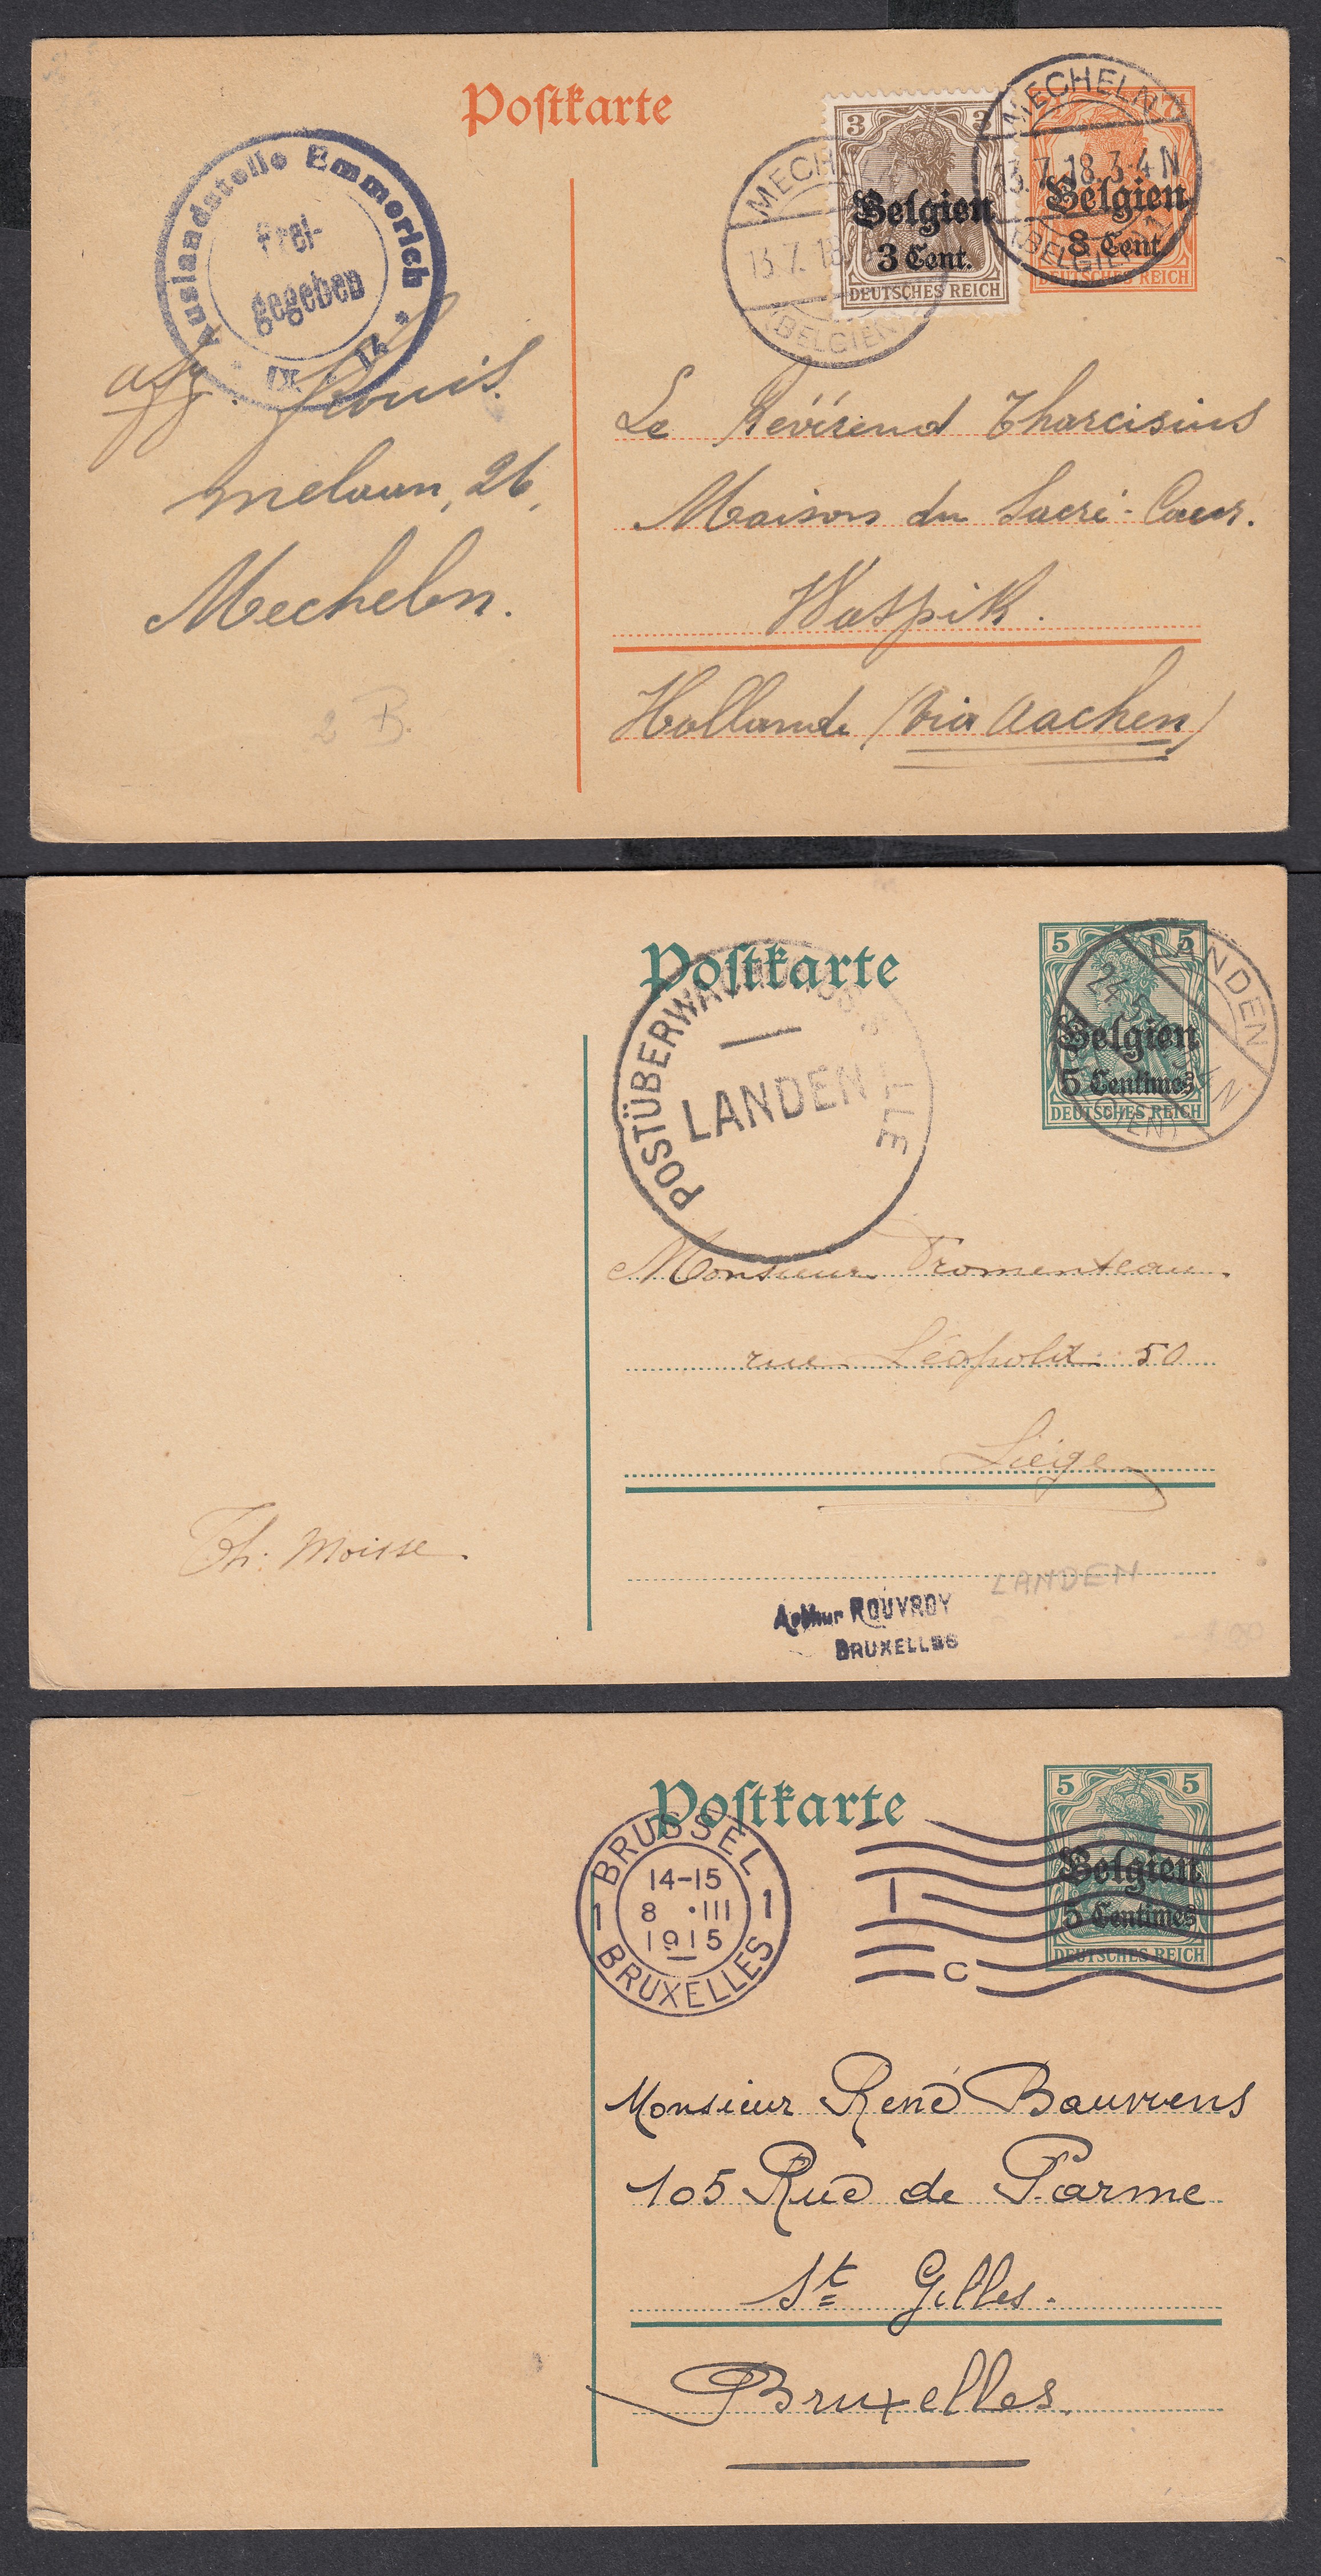 Postkarte
Auslandstelle Emmerich
Frei-
gegeben
IX. 14
3 3
Belgien
3 Cent.
DEUTSCHES REICH
MECHELN
13.7.18
(BELGIEN)
7½ 7½
Belgien
8 Cent.
DEUTSCHES REICH
MECHELN
13.7.18.3-4N
(BELGIEN)
afz. Louis.
melaan, 26,
Mecheln.
Le Révérend Tharcisius
Maison du Sacré-Coeur.
Waspik.
Hollande (via Aachen)
2 B.
Postkarte
POSTÜBERWACHUNGSSTELLE
LANDEN
5 5
Belgien
5 Centimes
DEUTSCHES REICH
LANDEN
24.5.
Monsieur Fromenteau.
rue Léopold 50
Liège
Th. Moisse.
LANDEN
Arthur ROUVROY
BRUXELLES
Postkarte
BRUSSEL
14-15
1 8 •III 1
1915
BRUXELLES
I
C
5 5
Belgien
5 Centimes
DEUTSCHES REICH
Monsieur René Bauwens
105 Rue de Parme
St Gilles.
Bruxelles.